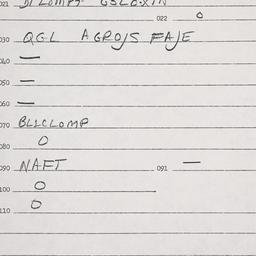 021
022 O
030 QGL AGROJS FAJE
040 —
050 —
060 —
070 BLICLOMP
080 O
090 NAFT 091 —
100 O
110 O